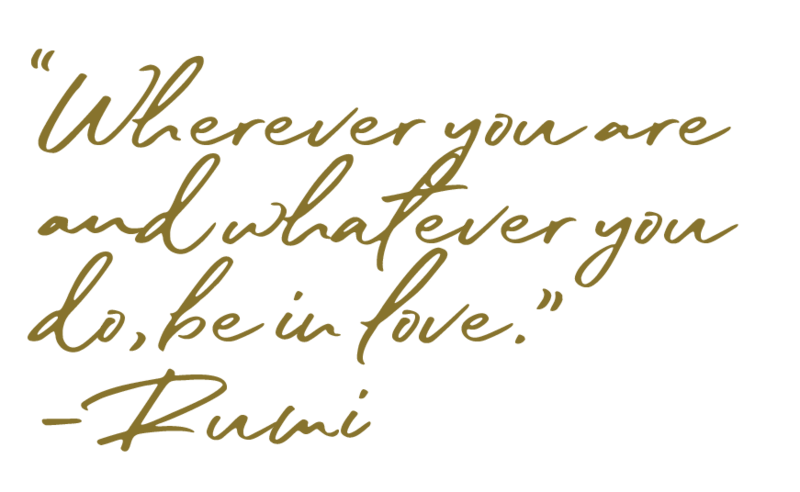 “Wherever you are
and whatever you
do, be in love.”
-Rumi